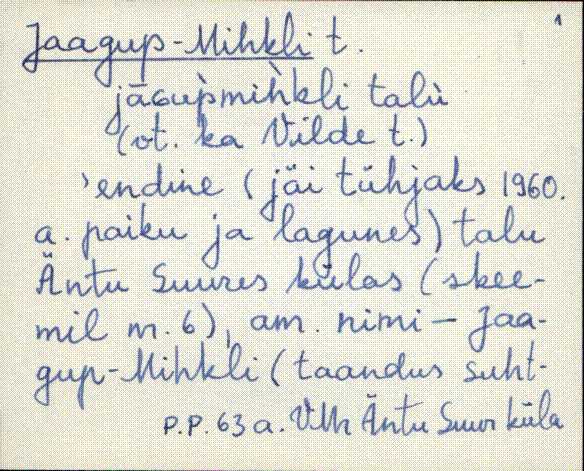 1
Jaagup-Mihkli t.
jāɢup̀mih̀kli talù
(vt. ka Vilde t.)
'endine (jäi tühjaks 1960.
a. paiku ja lagunes) talu
Äntu Suures külas (skee-
mil nr. 6), am. nimi – Jaa-
gup-Mihkli (taandus suht-
P.P. 63 a. VMr Äntu Suur küla